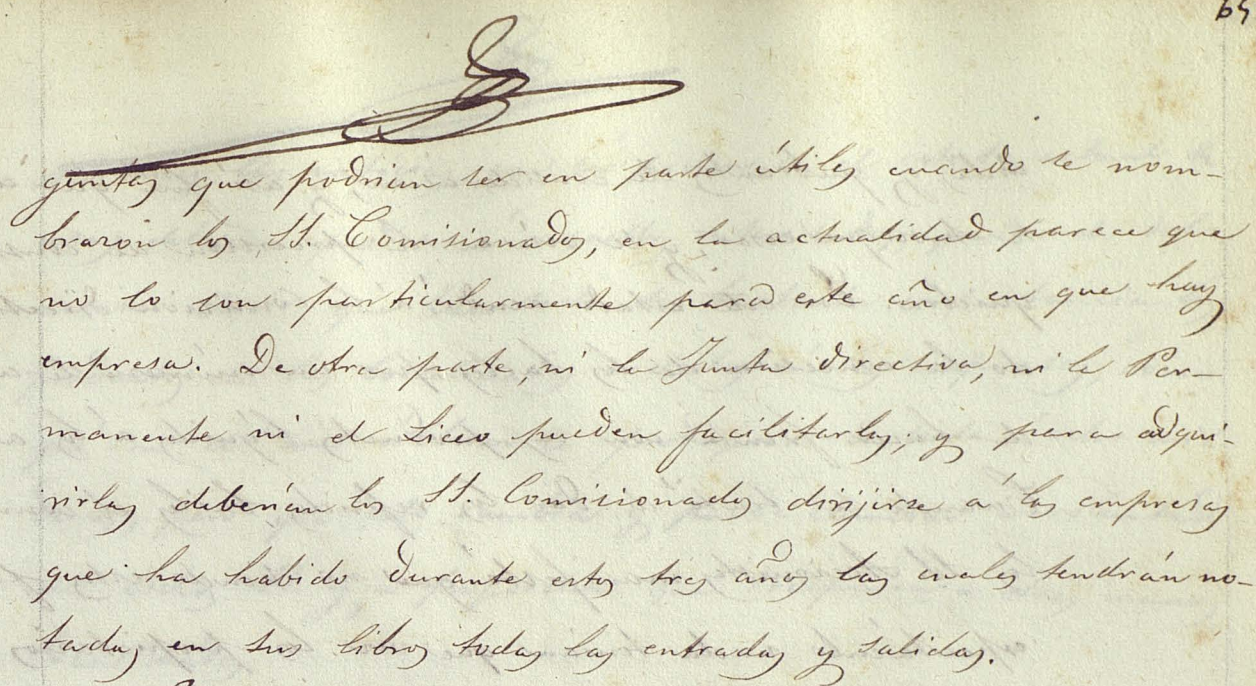 65
que podrian ser en parte útiles cuando se nom-
braron los SS. Comisionados, en la actualidad parece que
no lo son particularmente para este año en que hay
empresa. De otra parte, ni la Junta directiva, ni la Per-
manente ni el Liceo pueden facilitarlas; y para adqui-
rirlas deberían los SS. Comisionados dirijirse á las empresas
que ha habido durante estos tres años las cuales tendrán no-
tadas en sus libros todas las entradas y salidas.